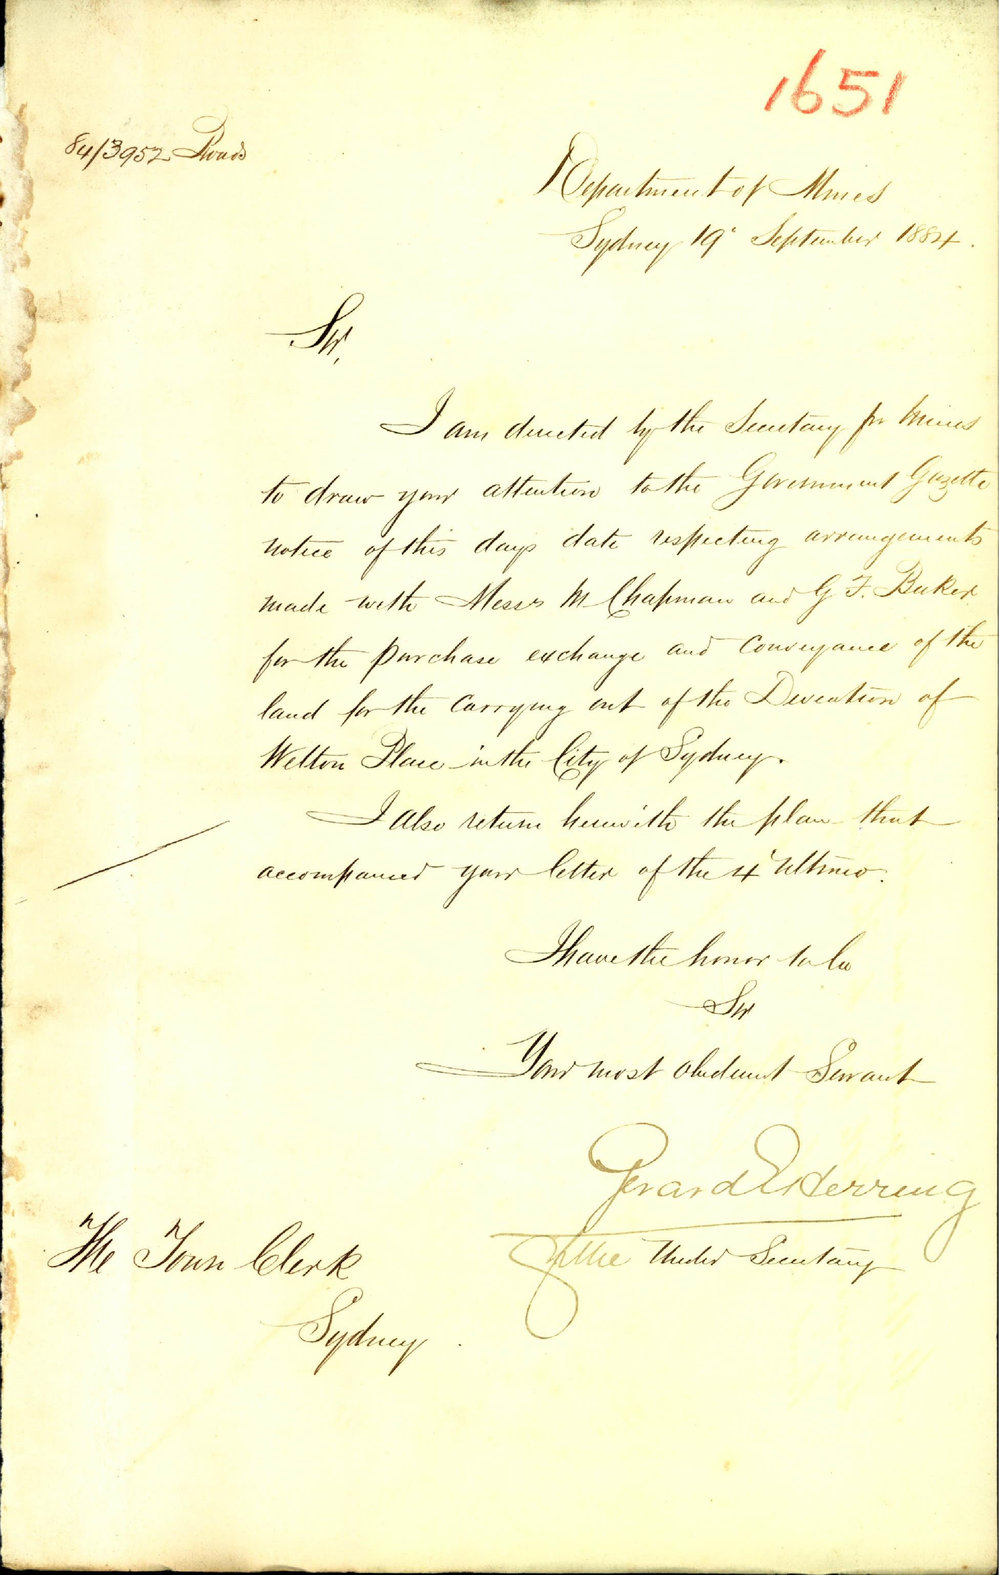 1651
84/3952 Roads
Department of Mines
Sydney 19 September 1884.
Sir,
I am directed by the Secretary for Mines
to draw your attention to the Government Gazette
notice of this days date respecting arrangements
made with Messrs M Chapman and G F. Baker
for the purchase exchange and conveyance of the
land for the carrying out of the Deviation of
Welton Place in the City of Sydney.
I also return herewith the plan that
accompanied your letter of the 4 Ultimo.
I have the honor to be
Sir
Your most obedient Servant
Gerard E Herring
for the Under Secretary
The Town Clerk
Sydney.